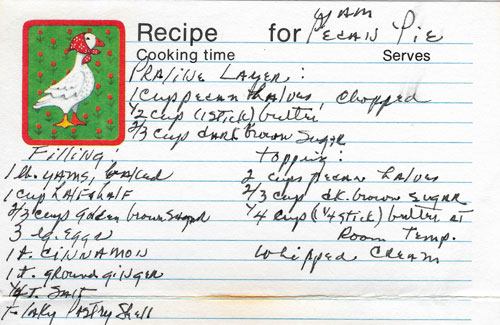 Recipe for Yam
Pecan Pie
Cooking time Serves
Praline Layer:
1 cup pecan halves, chopped
1/2 cup (1 stick) butter
2/3 cup dark brown sugar
Filling:
1 lb. yams, baked
1 cup half & half
2/3 cup golden brown sugar
3 lg. eggs
1 t. cinnamon
1 t. ground ginger
1/4 t. salt
Flaky Pastry Shell
Topping:
2 cups pecan halves
2/3 cup dk. brown sugar
1/4 cup (1/4 stick) butter at
Room Temp.
Whipped Cream